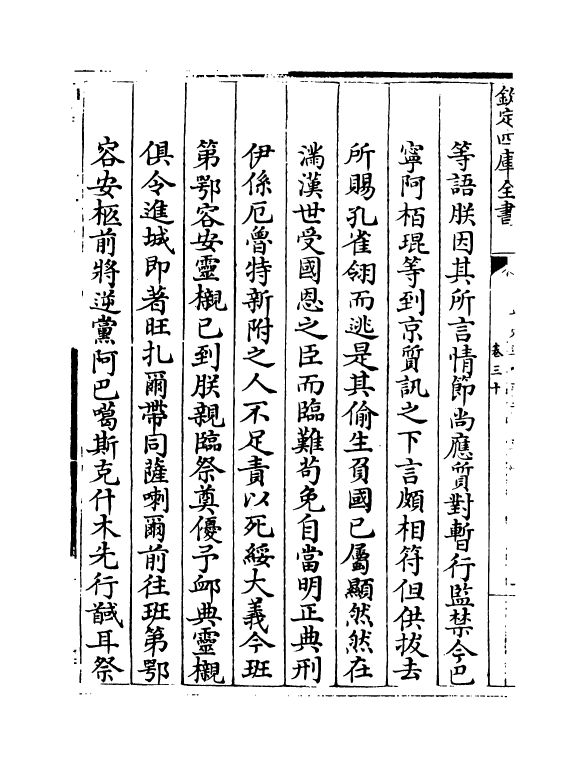 欽定四庫全書
卷三十
等語朕因其所言情節尚應質對暫行監禁今巴
寧阿栢琨等到京質訊之下言頗相符但供拔去
所賜孔雀翎而逃是其偷生負國已屬顯然然在
滿漢世受國恩之臣而臨難茍免自當明正典刑
伊係厄魯特新附之人不足責以死綏大義今班
第鄂容安靈櫬已到朕親臨祭奠優予䘏典靈櫬
俱令進城即著旺扎爾帶同薩喇爾前往班第鄂
容安柩前將逆黨阿巴噶斯克什木先行馘耳祭